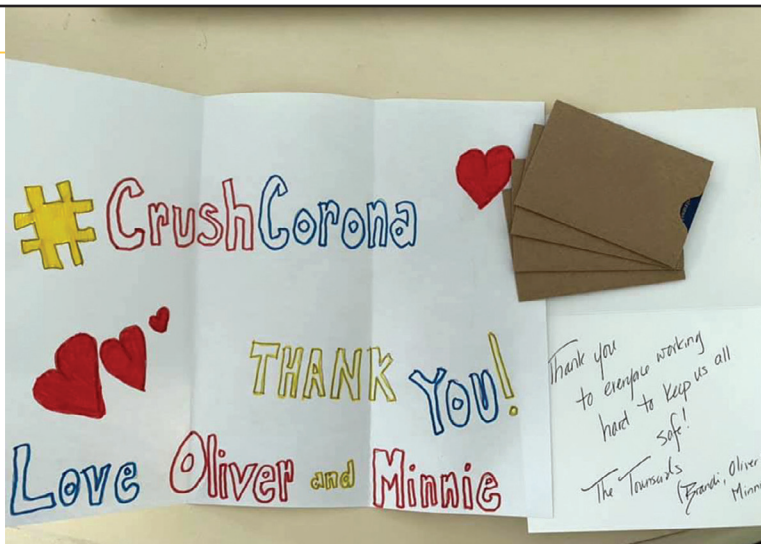 #CrushCorona
THANK YOU!
Love Oliver and Minnie
Thank you
to everyone working
hard to keep us all
safe!
The
(Brandi, Oliver